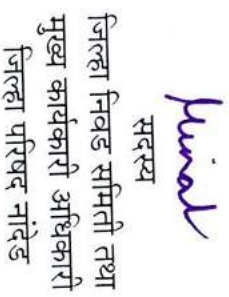 Minal
सदस्य
जिल्हा निवड समिती तथा
मुख्य कार्यकारी अधिकारी
जिल्हा परिषद नांदेड